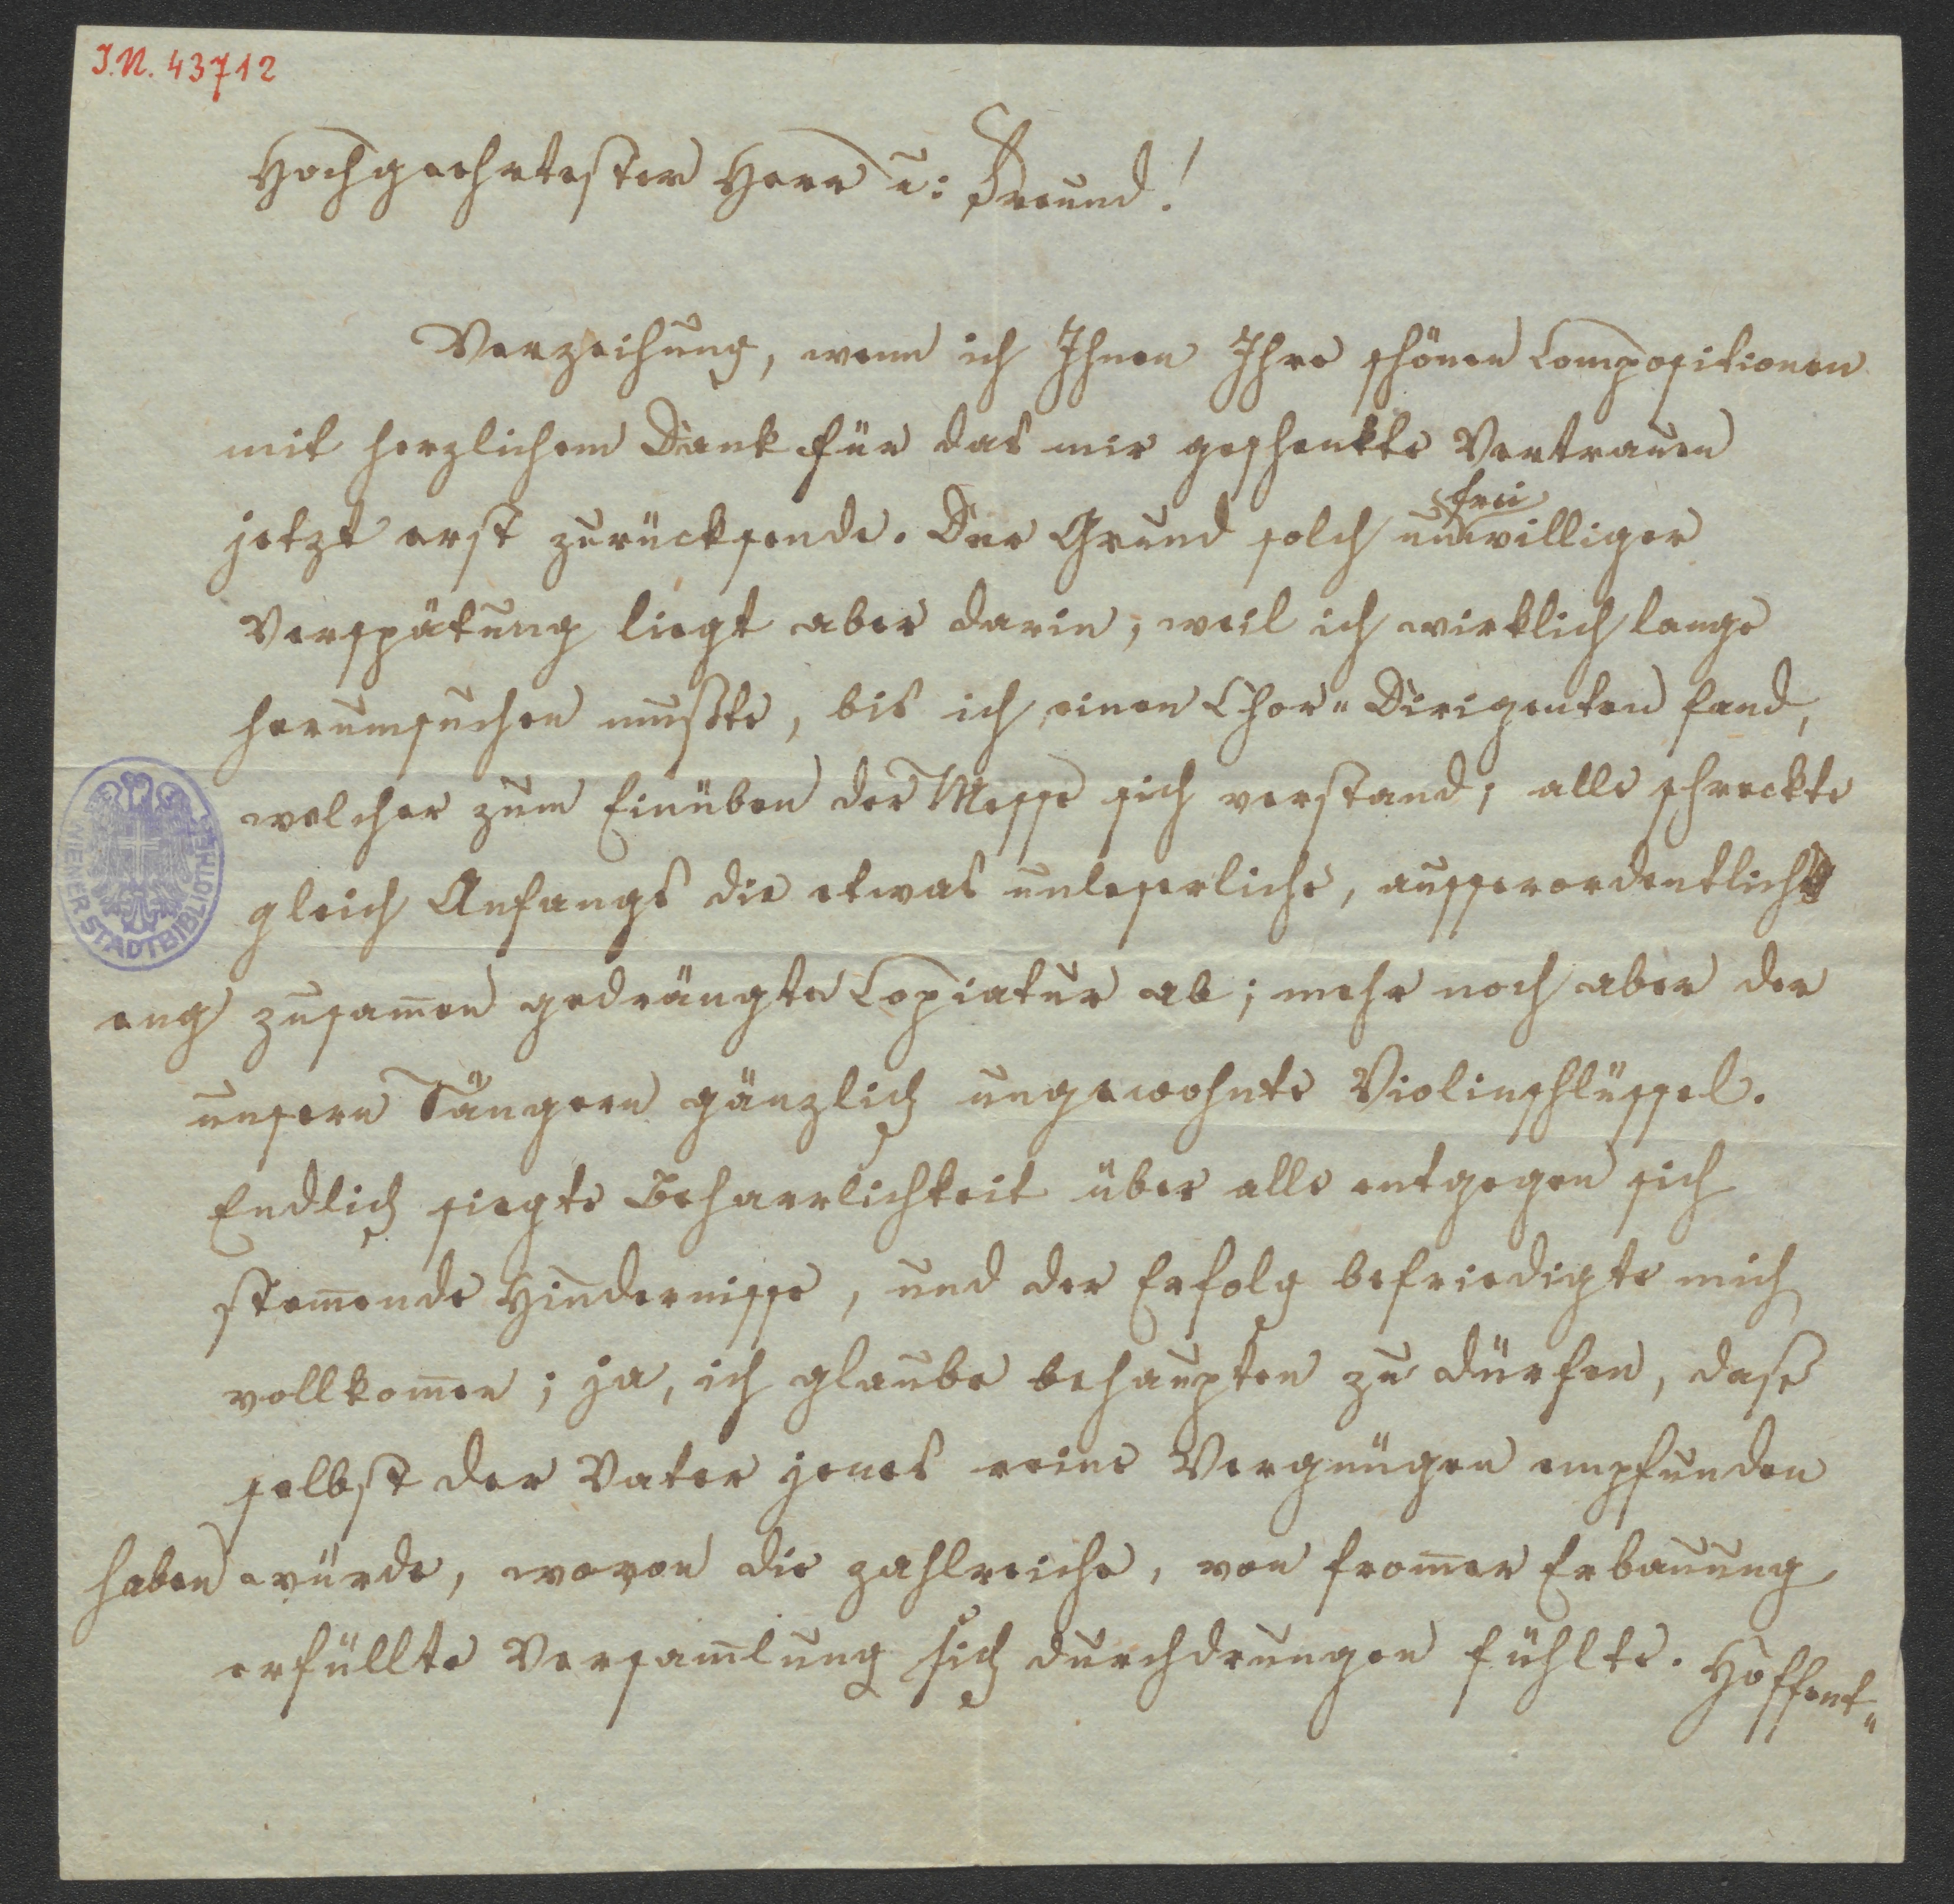 I.N. 43712
Hochgeehrtester Herr u: Freund!
Verzeihung, wenn ich Ihnen Ihre schönen Compositionen
mit herzlichem Dank für das mir geschenkte Vertrauen
jetzt erst zurücksende. Der Grund solch unfreiwilliger
Verspätung liegt aber darin, weil ich wirklich lange
herumsuchen mußte, bis ich einen Chor-Dirigenten fand,
welcher zum Einüben der Messe sich verstand; alle schreckte
gleich Anfangs die etwas unleserliche, ausserordentlich
eng zusam̅en gedrängte Copiatur ab; mehr noch aber der
unsern Sängern gänzlich ungewohnte Violinschlüssel.
Endlich siegte Beharrlichkeit über alle entgegen sich
stem̅ende Hindernisse, und der Erfolg befriedigte mich
vollkom̅en; ja, ich glaube behaupten zu dürfen, dass
selbst der Vater jenes reine Vergnügen empfunden
haben würde, wovon die zahlreiche, von from̅er Erbauung
erfüllte Versam̅lung sich durchdrungen fühlte. Hoffent-
WIENER STADTBIBLIOTHEK